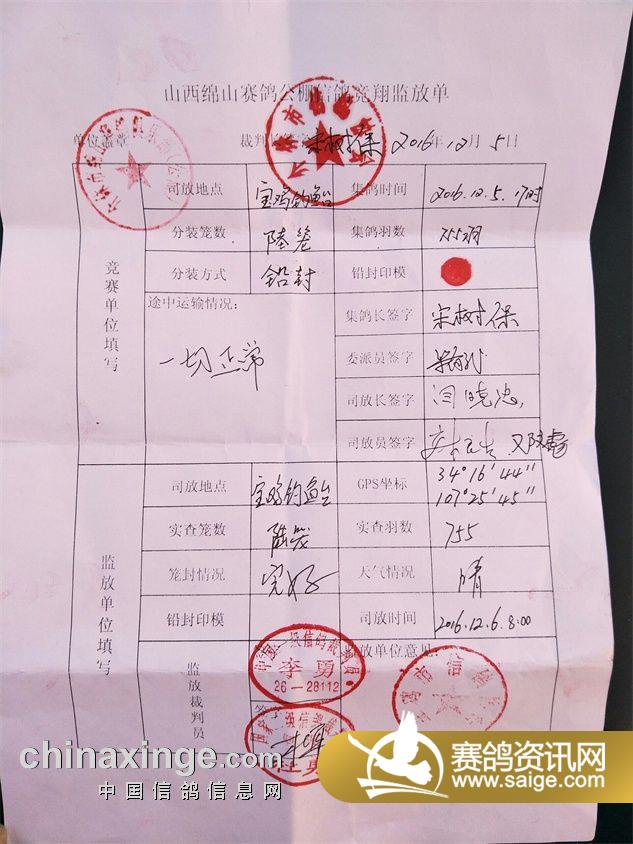 山西绵山赛鸽公棚信鸽竞翔监放单
单位盖章
裁判长签字 宋树保 2016年12月5日
竞赛单位填写
司放地点 宝鸡钓鱼台 集鸽时间 2016.12.5.17时
分装笼数 陆笼 集鸽羽数 755羽
分装方式 铅封 铅封印模
途中运输情况:
一切正常
集鸽长签字 宋树保
委派员签字
司放长签字 闫晓忠
司放员签字
监放单位填写
司放地点 宝鸡钓鱼台 GPS坐标 34°16′44″
107°25′45″
实查笼数 陆笼 实查羽数 755
笼封情况 完好 天气情况 晴
铅封印模 司放时间 2016.12.6.8:00
监放裁判员
签字
监放单位意见:
李勇
26—28112
chinaxinge.com
中国信鸽信息网
赛鸽资讯网
www.saige.com